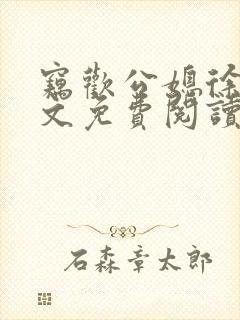 竊歡公媳徐
文免費閱讀
石森章太郎